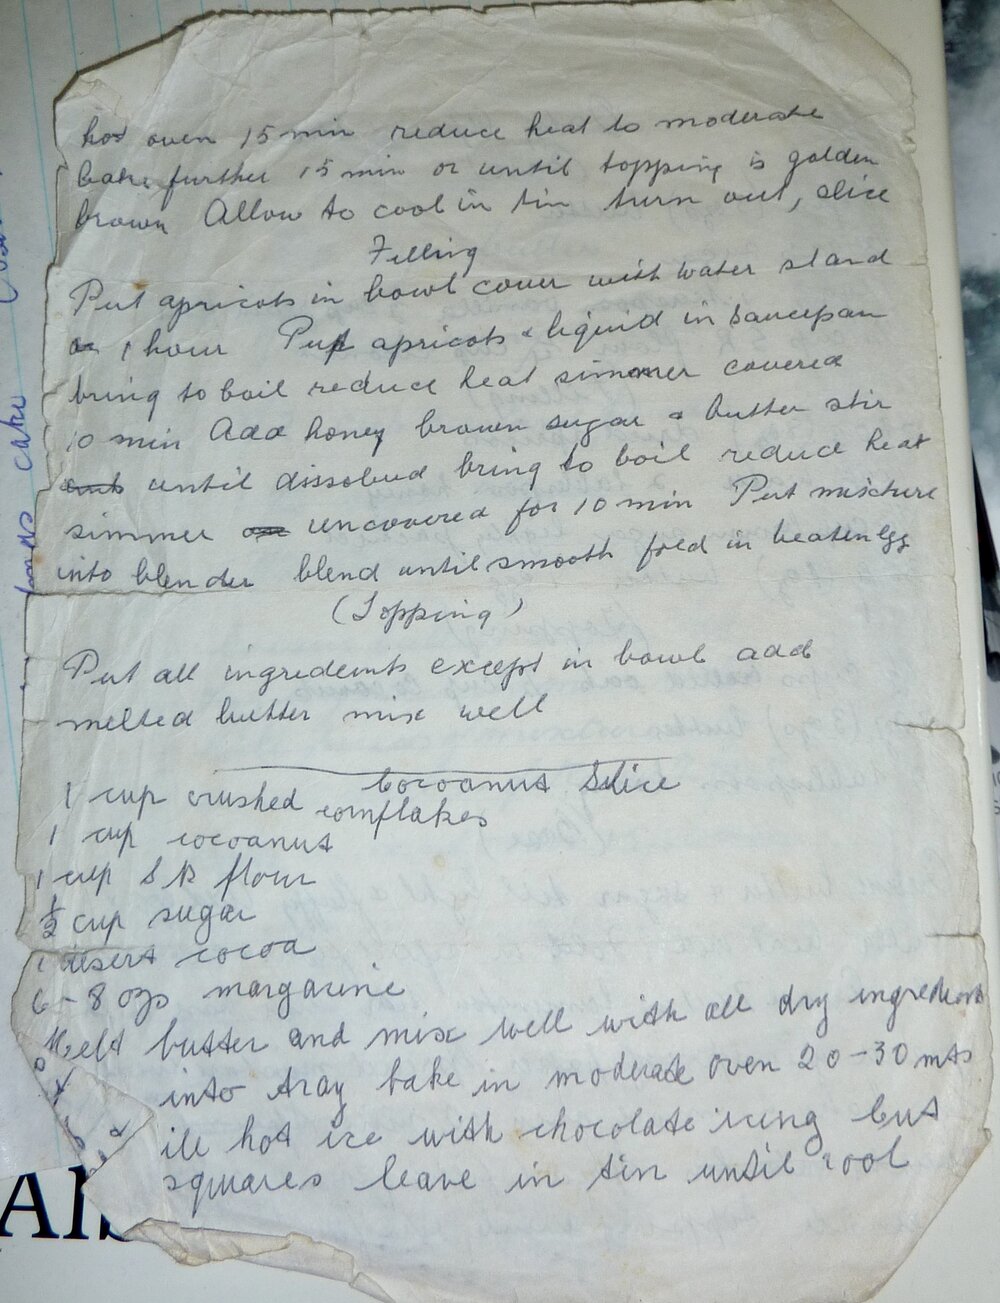 hot oven 15 min reduce heat to moderate
bake further 15 min or until topping is golden
brown Allow to cool in tin turn out, slice
Filling
Put apricots in bowl cover with water stand
1 hour Put apricots & liquid in saucepan
bring to boil reduce heat simmer covered
10 min Add honey brown sugar & butter stir
until dissolved bring to boil reduce heat
simmer uncovered for 10 min Put mixture
into blender blend until smooth fold in beaten egg
(Topping)
Put all ingredients except in bowl add
melted butter mix well
Cocoanut Slice
1 cup crushed cornflakes
1 cup cocoanut
1 cup S R flour
½ cup sugar
1 desert cocoa
6-8 ozs margarine
Melt butter and mix well with all dry ingredients
into tray bake in moderate oven 20-30 mts
ill hot ice with chocolate icing cut
squares leave in tin until cool
cake